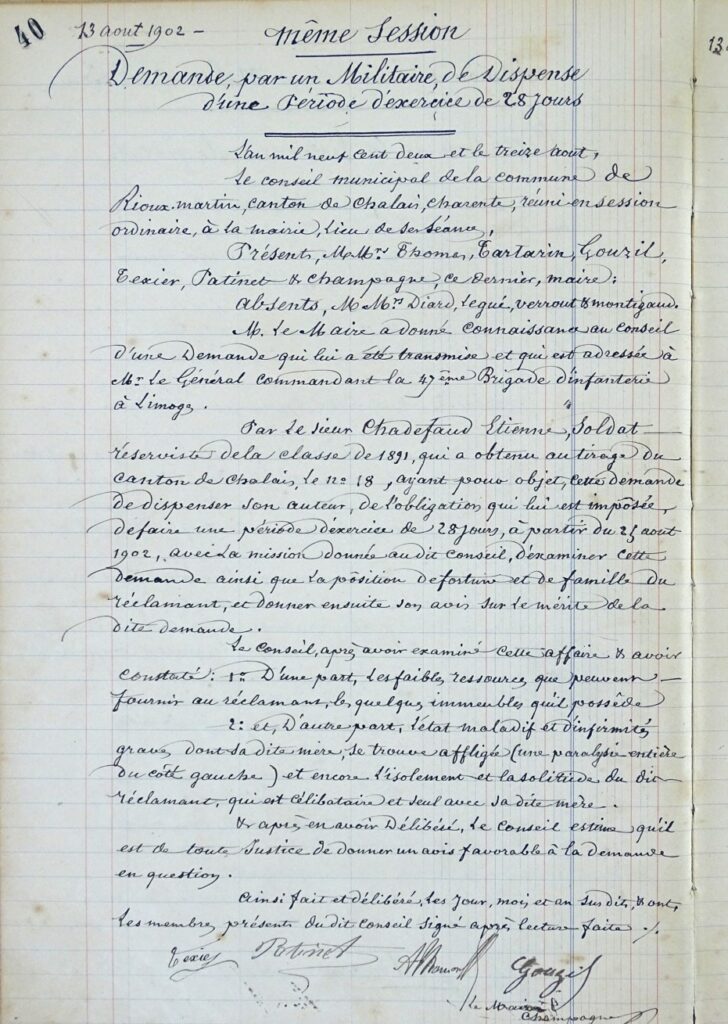 40
13 aout 1902 -
même Session
Demande, par un Militaire, de Dispense
d'une Période d'exercice de 28 Jours
L'an mil neuf cent deux et le treize aout,
Le conseil municipal de la commune de
Rioux-martin, canton de Chalais, charente, réuni en session
ordinaire, à la mairie, Lieu de ses séances,
Présents, M.Mrs Thomas, Tartarin, Gouzil,
Texier, Patinet & Champagne, ce dernier, maire;
absents, M Mrs Diard, Legué, verrout & montigaud.
M. Le Maire a donné connaissance au conseil
d'une Demande qui lui a été transmise et qui est adressée à
Mr Le Général commandant la 47ème Brigade d'infanterie
à Limoges.
Par Le sieur Chadefaud Etienne, Soldat
réserviste de la classe de 1891, qui a obtenu au tirage du
canton de Chalais, Le no 18, ayant pour objet, cette demande
de dispenser son auteur, de l'obligation qui lui est imposée,
de faire une période d'exercice de 28 Jours, à partir du 25 aout
1902, avec La mission donnée audit conseil, d'examiner cette
demande ainsi que La position de fortune et de famille du
réclamant, et donner ensuite son avis sur Le mérite de la
dite demande.
Le conseil, après avoir examiné cette affaire & avoir
constaté: 1o D'une part, Les faibles ressources que peuvent
fournir au réclamant, les quelques immeubles qu'il possède
2o et, D'autre part, L'état maladif et d'infirmités
graves dont sa dite mère, se trouve affligée (une paralysie entière
du côté gauche) et encore L'isolement et la solitude du dit
réclamant, qui est célibataire et seul avec sa dite mère.
& après en avoir Délibéré, Le conseil estime qu'il
est de toute Justice de donner un avis favorable à la demande
en question.
Ainsi fait et délibéré, Les Jour, mois et an susdits, & ont,
Les membres présents dudit Conseil signé après lecture faite ./.
Texier Patinet Gouzil
Le Maire
Champagne
13